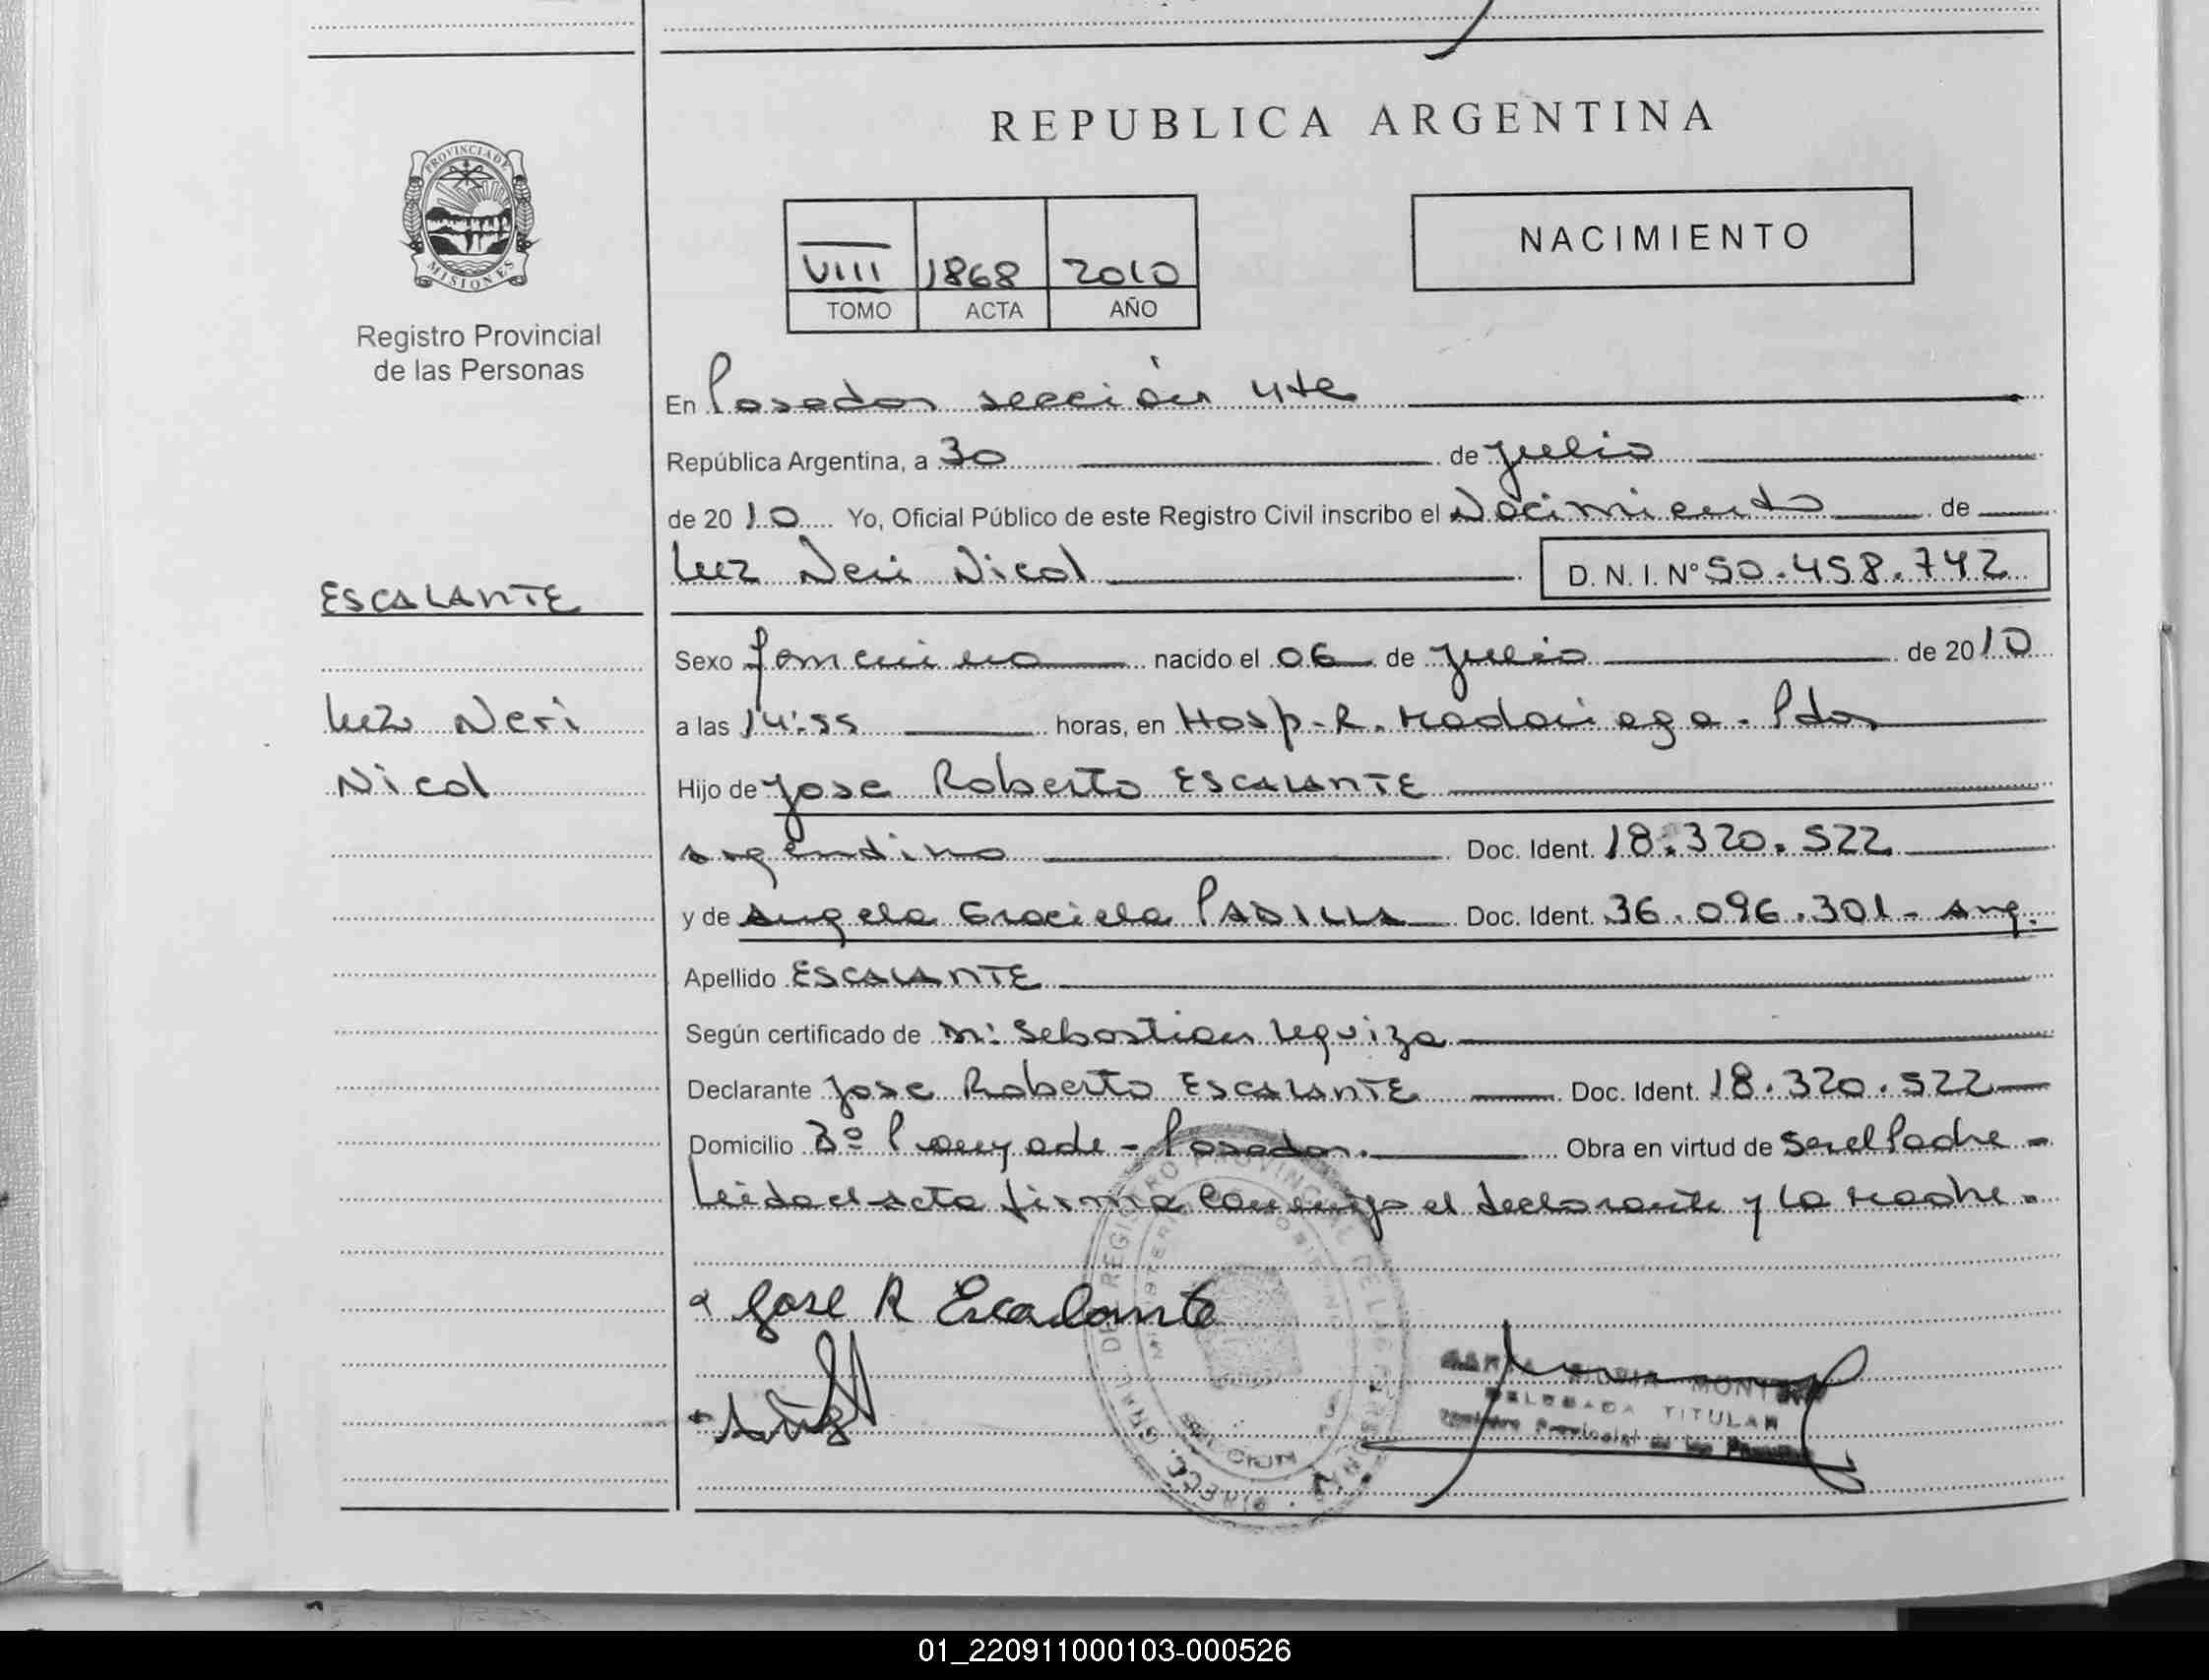 REPUBLICA ARGENTINA
PROVINCIA DE
MISIONES
Registro Provincial
de las Personas
NACIMIENTO
VIII 1868 2010
TOMO ACTA AÑO
En Posadas sección 4ta
República Argentina, a 30 de julio
de 2010 Yo, Oficial Público de este Registro Civil inscribo el Nacimiento de
Luz Neri Nicol D. N. I. N° 50.458.742
ESCALANTE
Luz Neri
Nicol
Sexo femenino nacido el 06 de julio de 2010
a las 14:55 horas, en Hosp. R. Madariaga - Pdas
Hijo de Jose Roberto ESCALANTE
argentino Doc. Ident. 18.320.522
y de Angela Graciela PADILLA Doc. Ident. 36.096.301 - arg.
Apellido ESCALANTE
Según certificado de M: Sebastian Uguiza
Declarante Jose Roberto ESCALANTE Doc. Ident. 18.320.522
Domicilio Bº - Posadas. Obra en virtud de Ser el Padre -
Leida el acta firma conmigo el declarante y la Madre.
Jose R Escalante
MONT
DELEGADA TITULAR
Registro Provincial de las Personas
DIRECC. GRAL. DE REGISTRO PROVINCIAL DE LAS PERSONAS
01_220911000103-000526